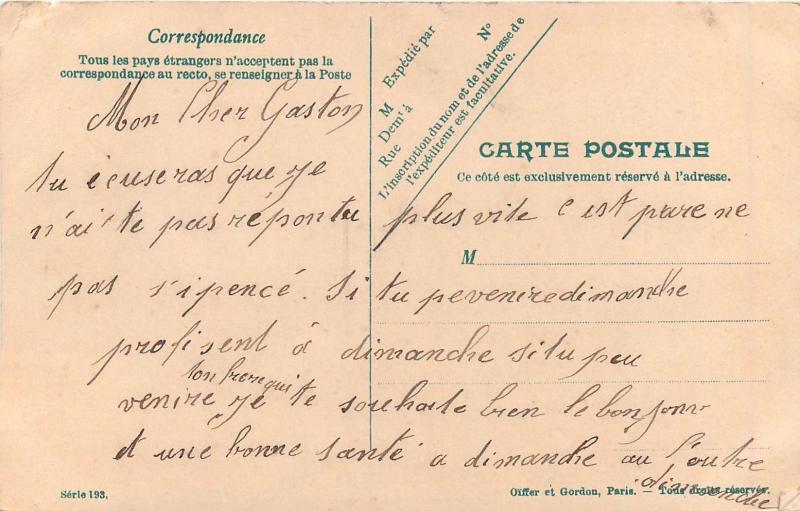 Correspondance
Tous les pays étrangers n'acceptent pas la
correspondance au recto, se renseigner à la Poste
Expédié par
M
Demt à
Rue
N°
L'inscription du nom et de l'adresse de
l'expéditeur est facultative.
CARTE POSTALE
Ce côté est exclusivement réservé à l'adresse.
M
Mon Cher Gaston
tu écuseras que je
n'ai te pas répontu plus vite c'est pare ne
pas s'ipencé. Si tu pe venire dimanche
profisent à dimanche si tu peu
ton frere qui
venire je te souhate bien le bonjour
et une bonne santé a dimanche au l'outre
dimenche
Série 193,
Oïffer et Gordon, Paris. — Tous droits réservés.